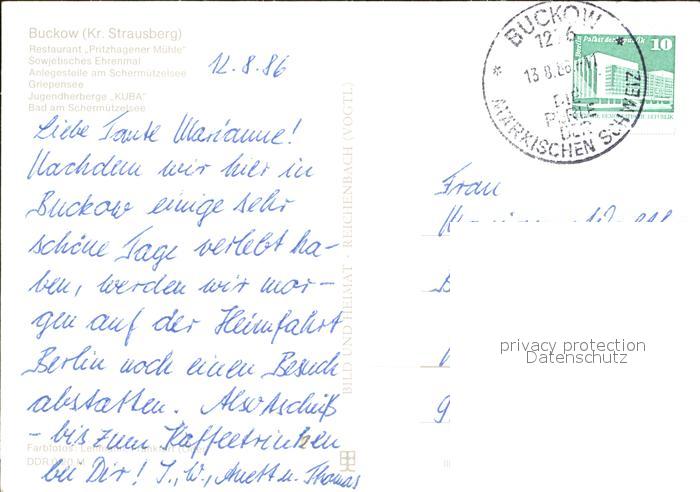 Buckow (Kr. Strausberg)
Restaurant „Pritzhagener Mühle"
Sowjetisches Ehrenmal
Anlegestelle am Schermützelsee
Griepensee
Jugendherberge „KUBA"
Bad am Schermützelsee
12.8.86
Liebe Tante Marianne!
Nachdem wir hier in
Buckow einige sehr
schöne Tage verlebt ha-
ben, werden wir mor-
gen auf der Heimfahrt
Berlin noch einen Besuch
abstatten. Also tschüß
- bis zum Kaffeetrinken
bei Dir! J., W., Anett u. Thomas
Farbfotos:
DDR
BILD UND HEIMAT · REICHENBACH (VOGTL)
BUCKOW
12.6
13.8.86
DIE
PERLE
DER
MÄRKISCHEN SCHWEIZ
Berlin Palast der Republik
10
Frau
privacy protection
Datenschutz